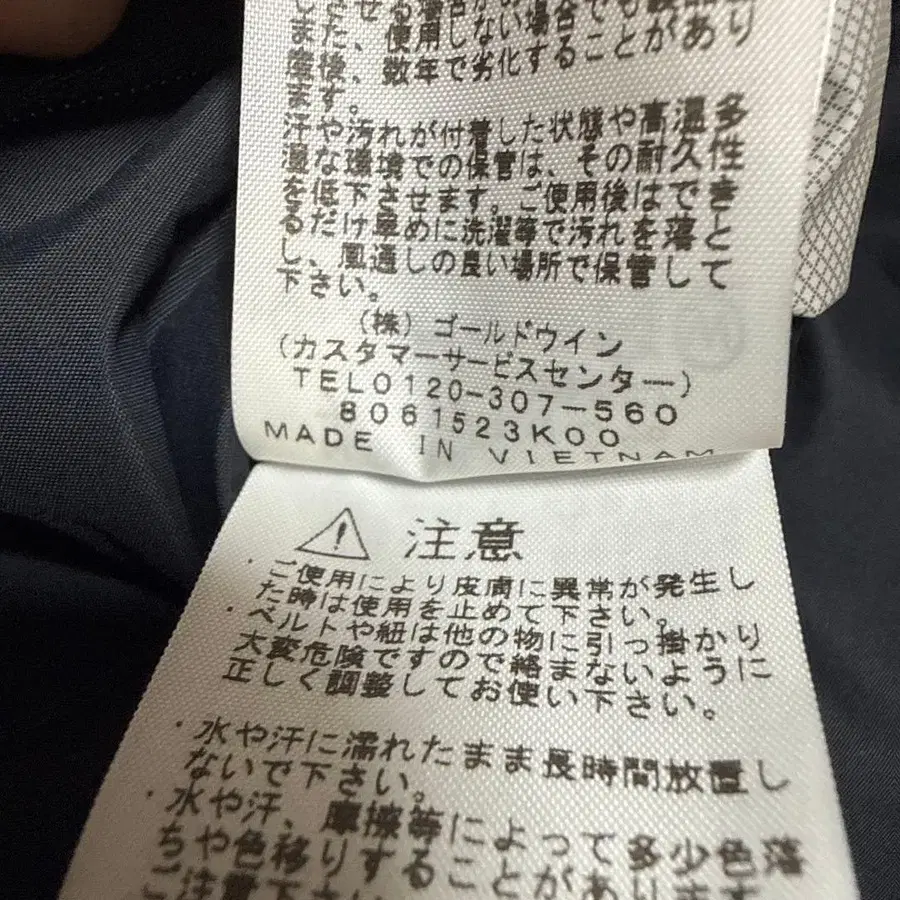 使用しない場合でも
数年で劣化することがあり
ます。
汗や汚れが付着した状態や高温多
湿な環境での保管は、その耐久性
を低下させます。ご使用後はでき
るだけ早めに洗濯等で汚れを落と
し、風通しの良い場所で保管して
下さい。
(株)ゴールドウイン
(カスタマーサービスセンター)
TEL0120-307-560
8061523K00
MADE IN VIETNAM
注意
・ご使用により皮膚に異常が発生し
た時は使用を止めて下さい。
・ベルトや紐は他の物に引っ掛かり
大変危険ですので絡まないように
正しく調整してお使い下さい。
・水や汗に濡れたまま長時間放置し
ないで下さい。
・水や汗、摩擦等によって多少色落
ちや色移りすることがあります
ご注意下さい